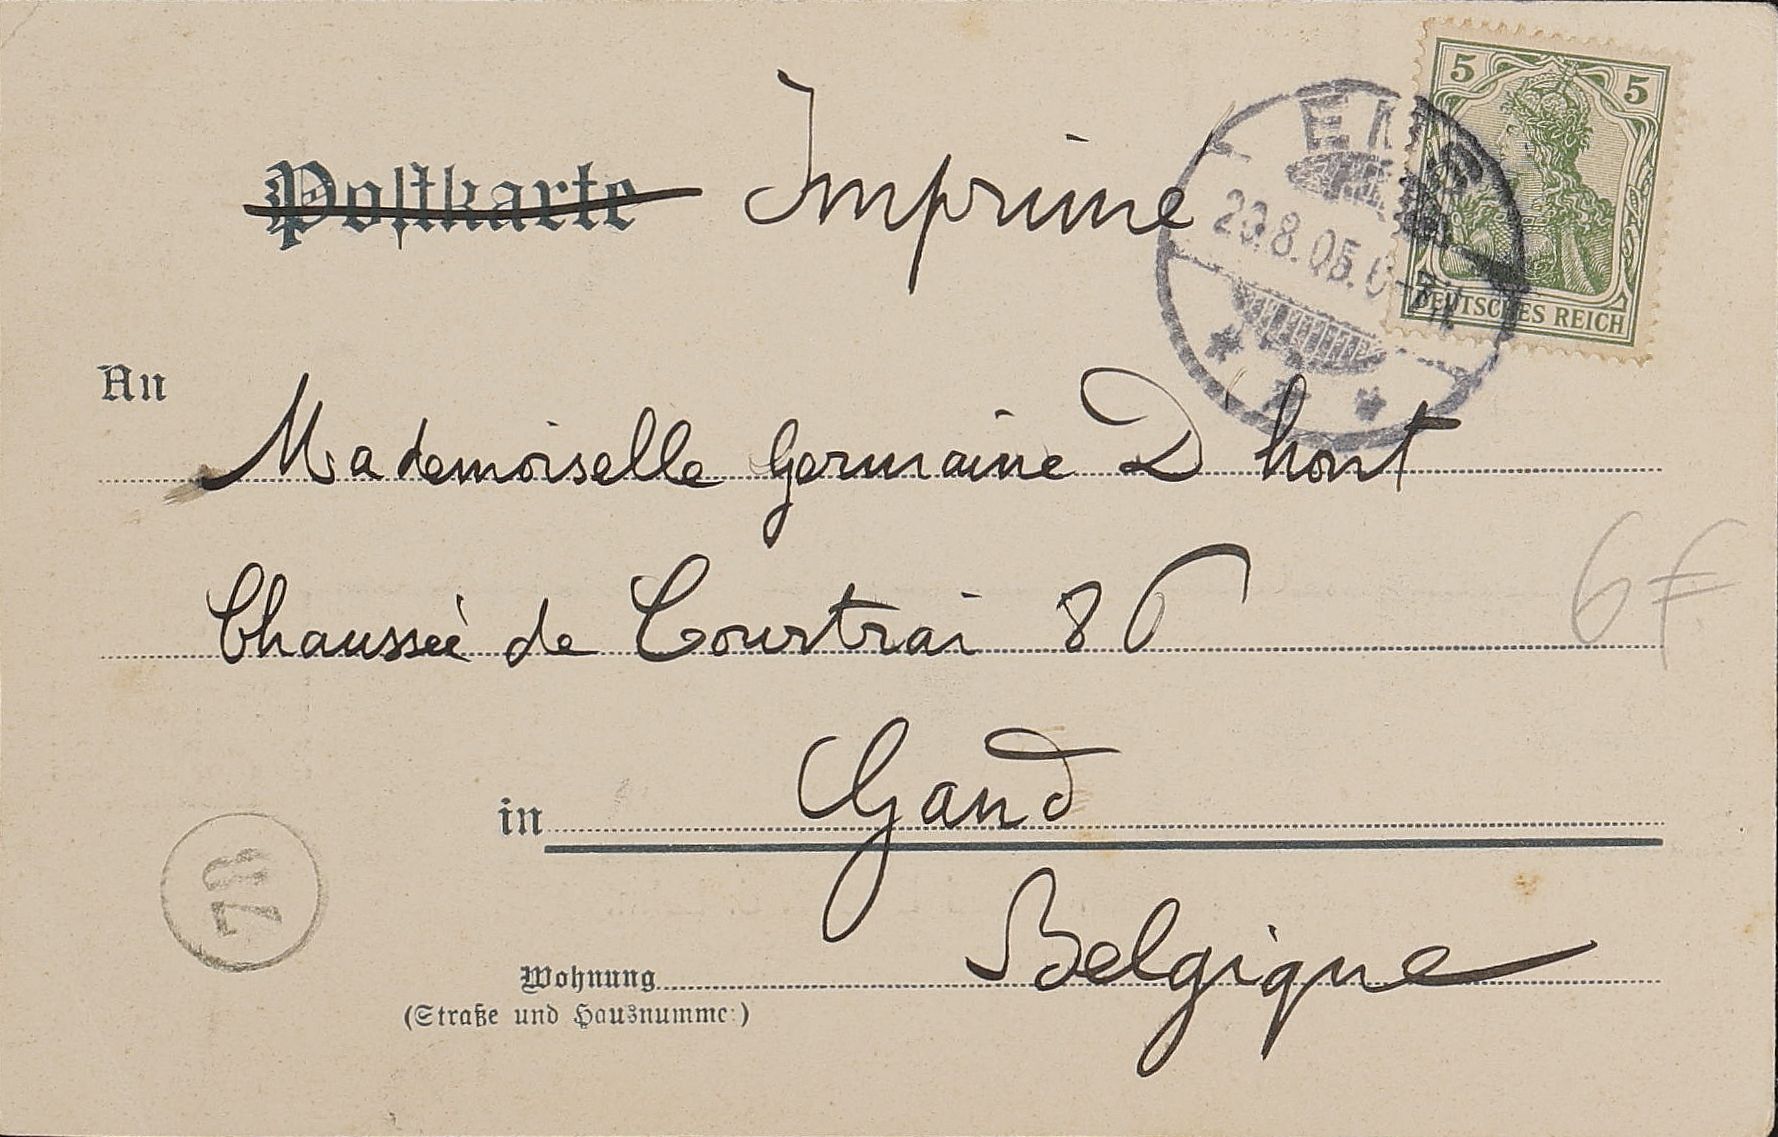 Postkarte Imprime
5 5
EMS
DEUTSCHES REICH
An
Mademoiselle Germaine D'hont
Chaussée de Courtrai 86
6 F
in Gand
Belgique
Wohnung
(Straße und Hausnummer)